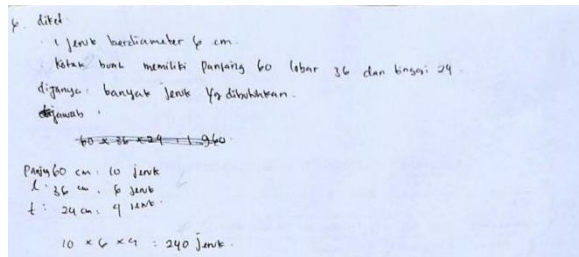 6. diket
1 jeruk berdiameter 6 cm.
Kotak buah memiliki panjang 60 lebar 36 dan tinggi 24
ditanya: banyak jeruk yg dibutuhkan.
dijawab:
60 x 36 x 24 :
Panjng 60 cm : 10 jeruk
l : 36 cm : 6 jeruk
t : 24 cm : 4 jeruk.
10 x 6 x 4 : 240 jeruk.